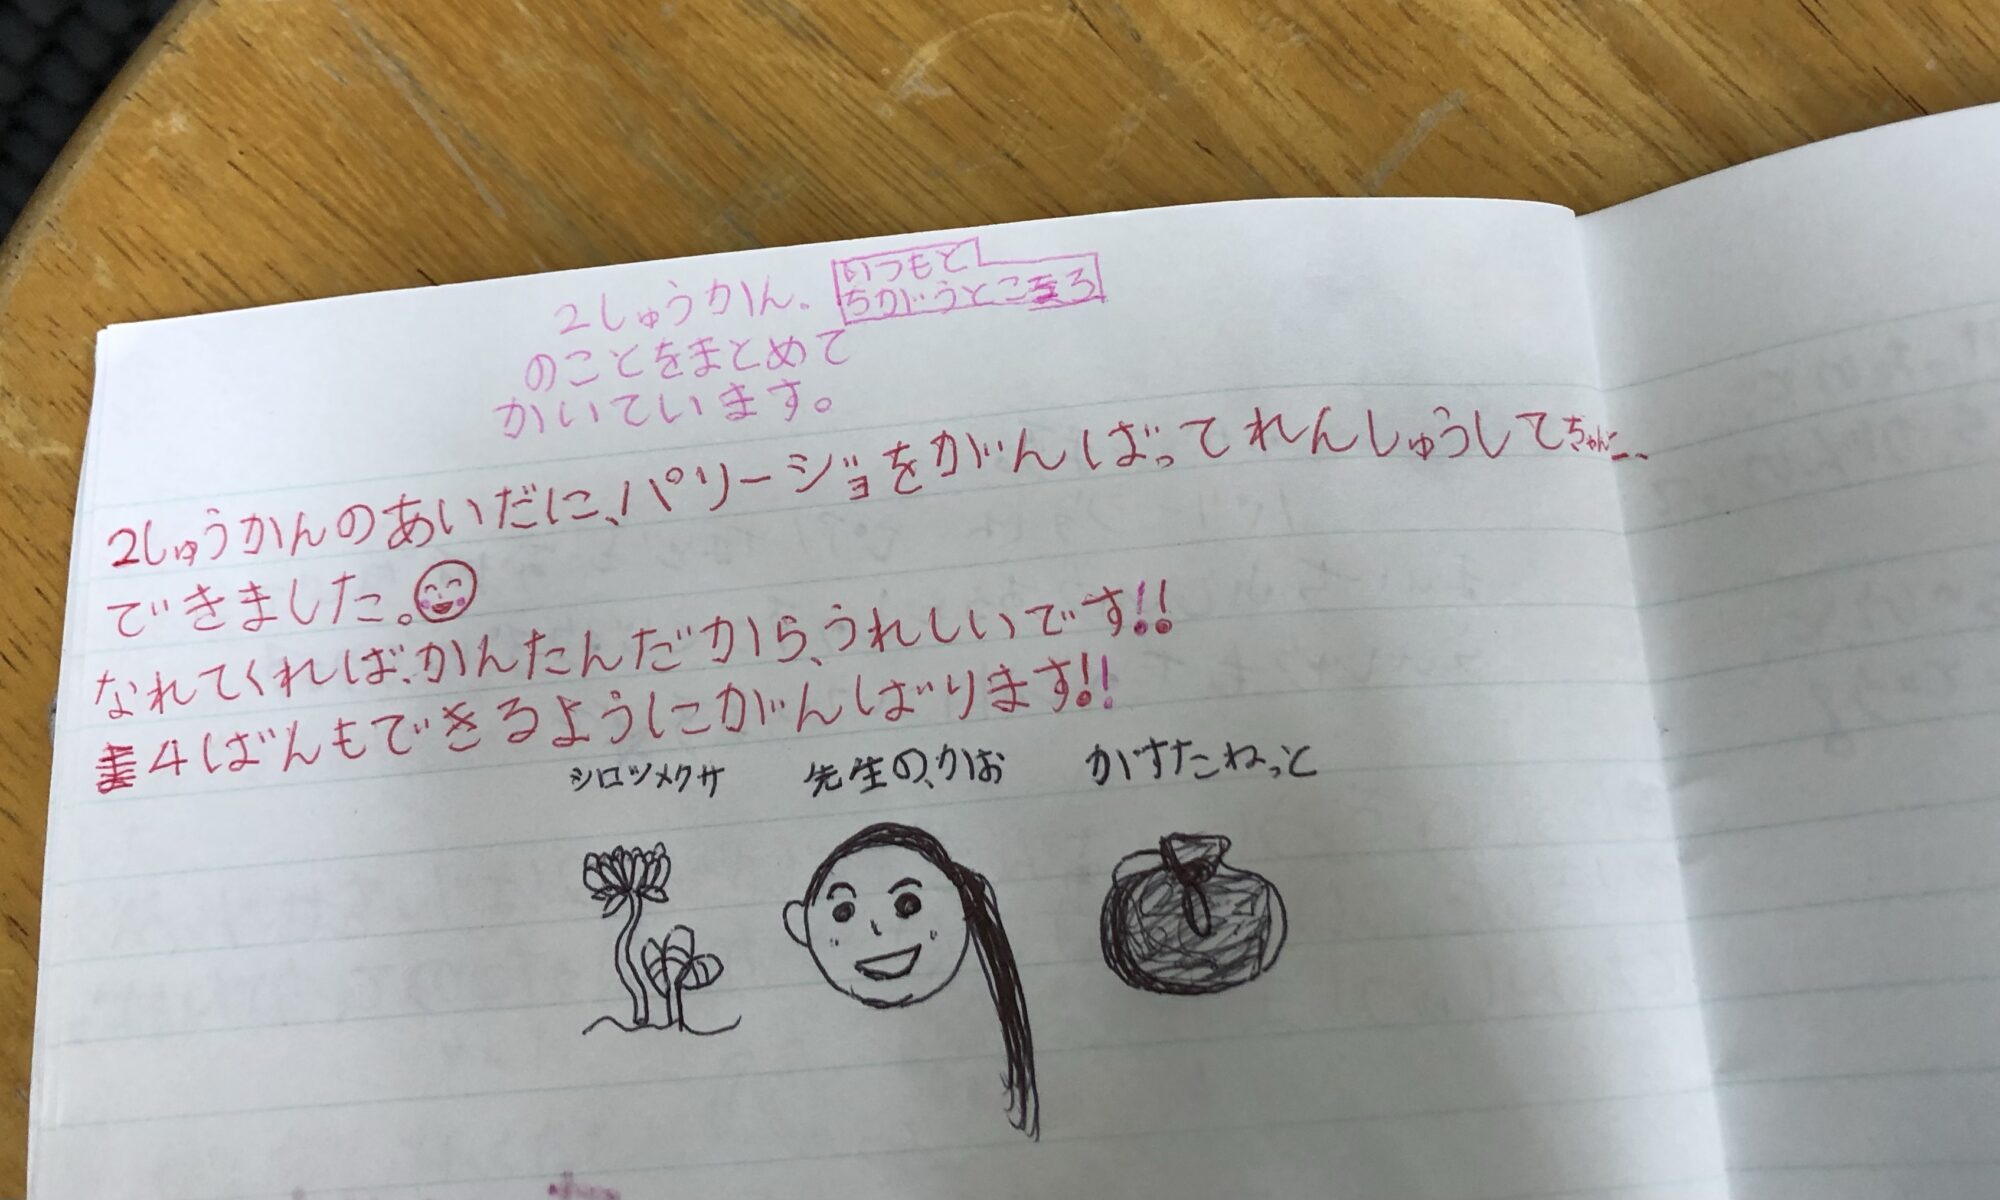 2しゅうかん.
いつもと
ちがうところ
のことをまとめて
かいています。
2しゅうかんのあいだに、パリージョをがんばってれんしゅうしてちゃんと、
できました。
なれてくれば、かんたんだから、うれしいです!!
4ばんもできるようにがんばります!!
シロツメクサ 先生の、かお かすたねっと